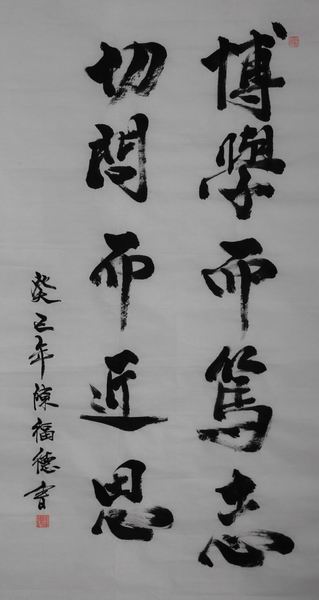 博學而篤志
切問而近思
癸巳年陳福德書